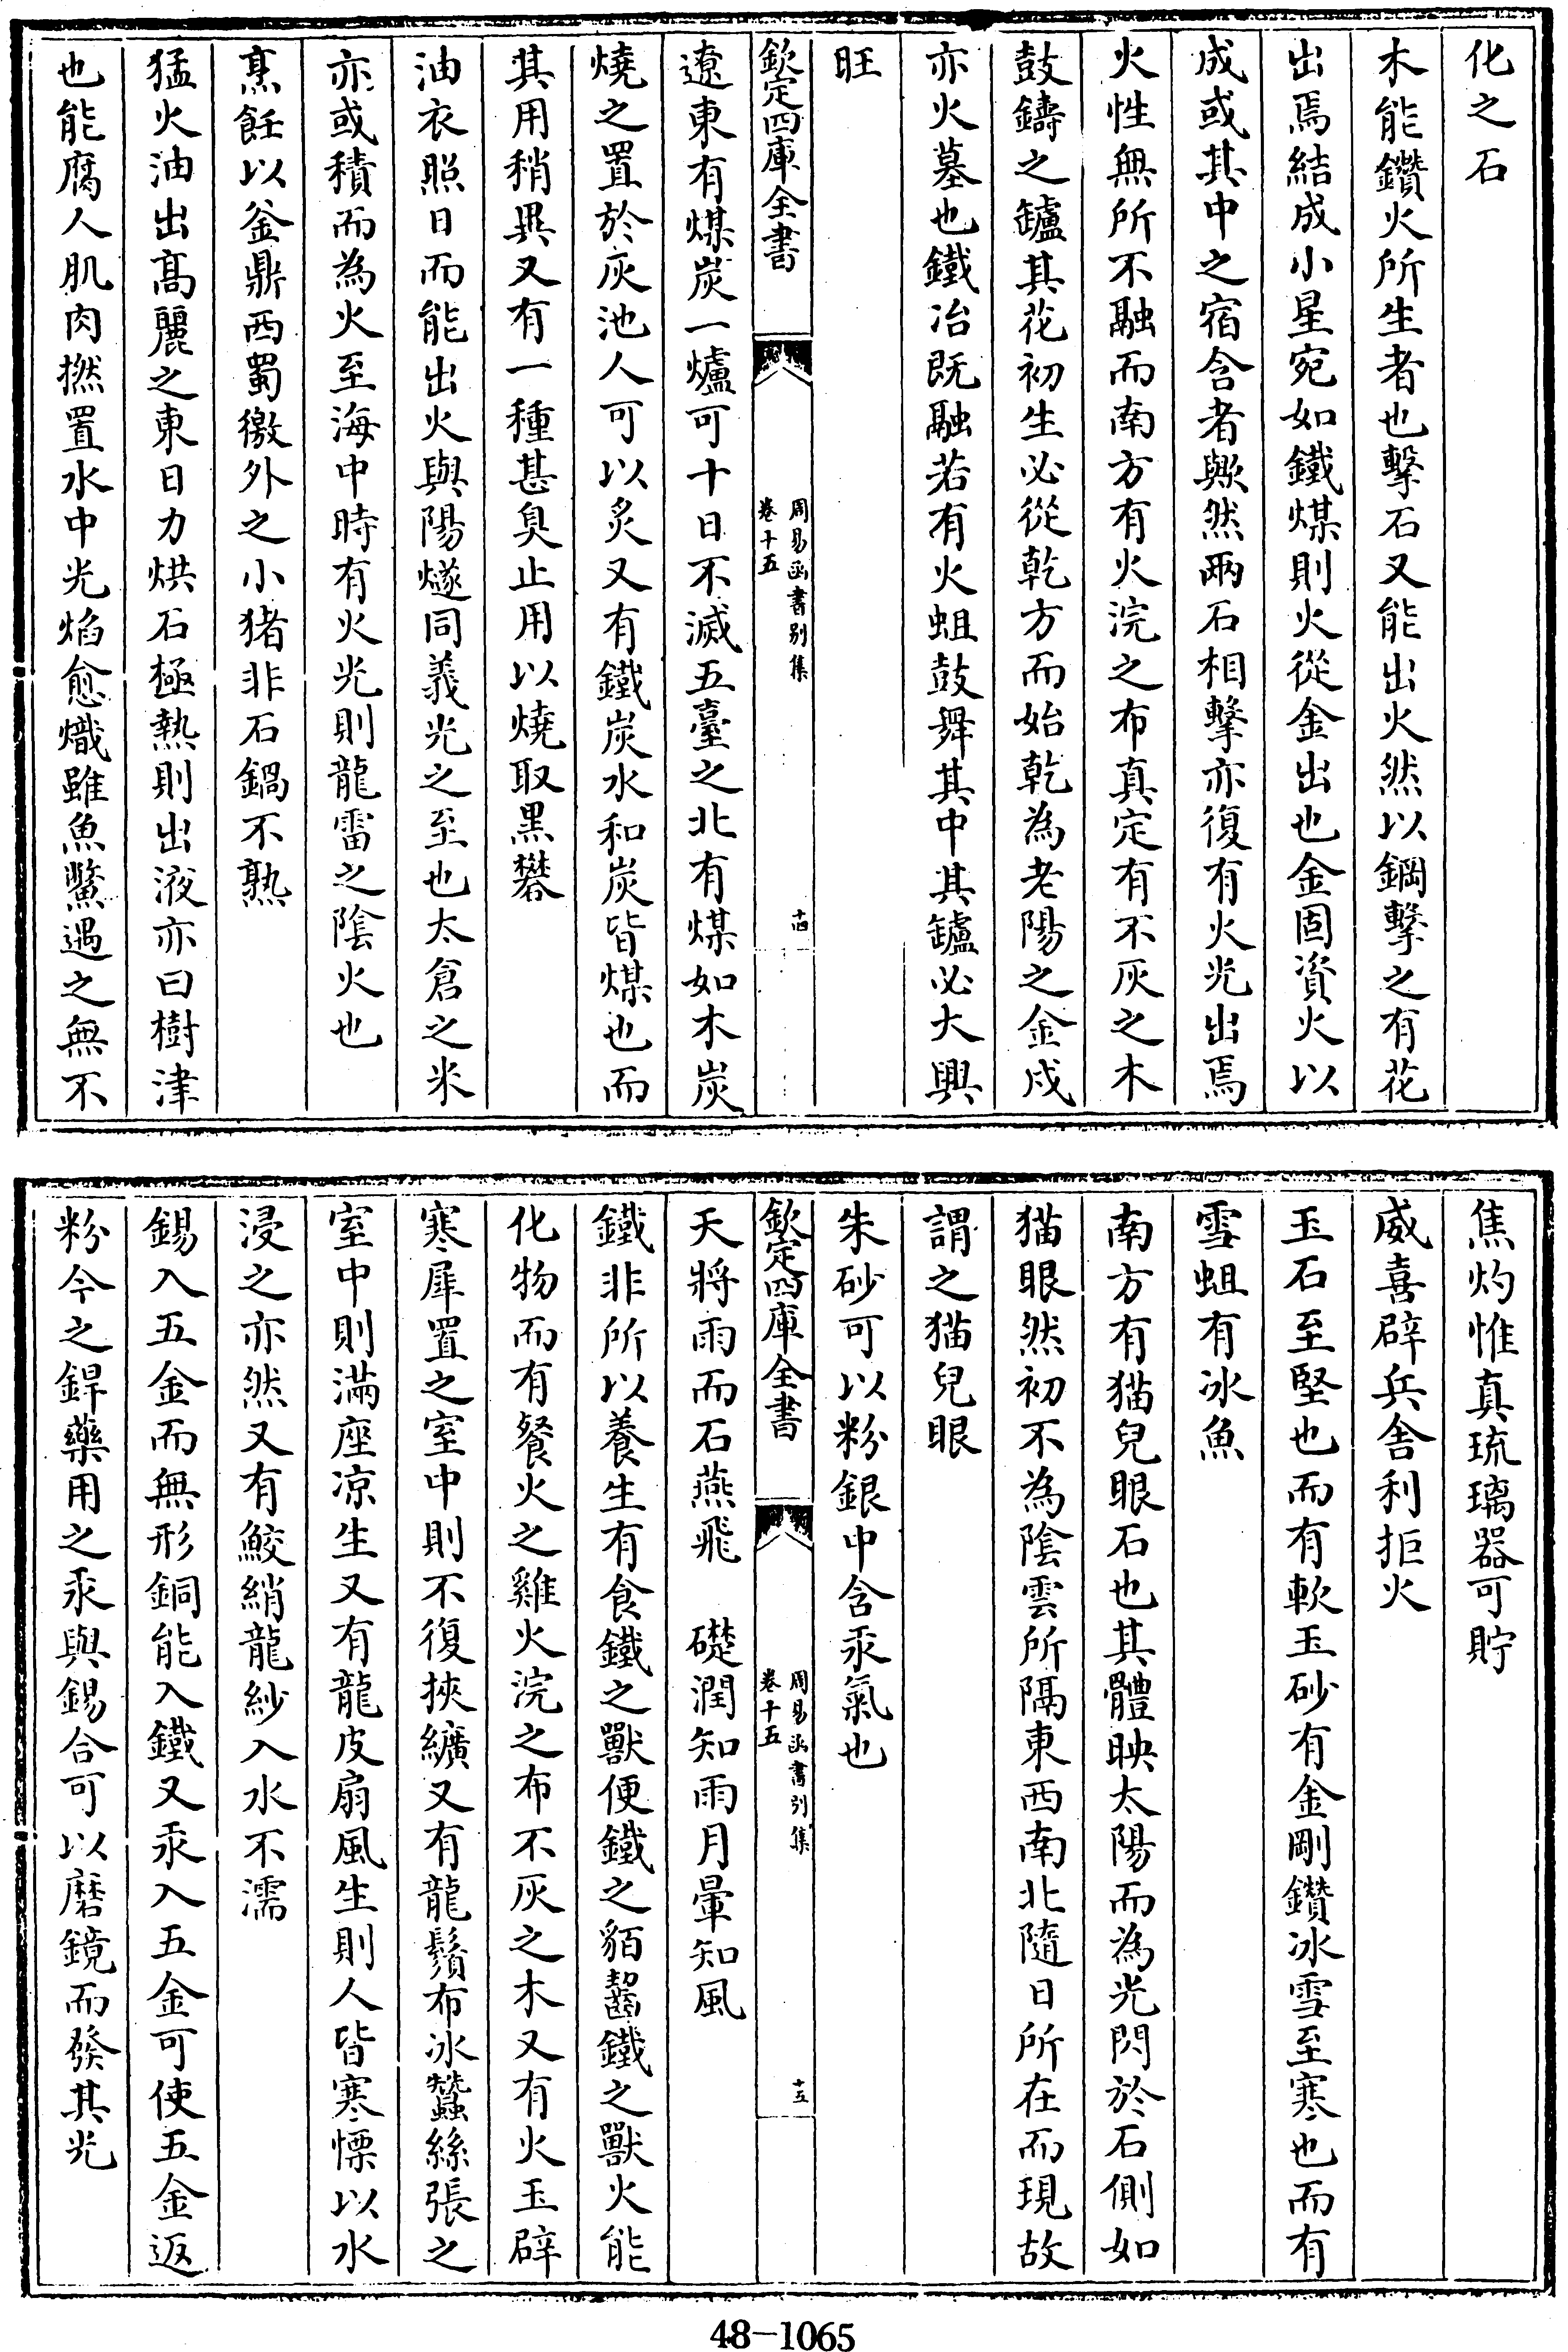 化之石
木能鑽火所生者也擊石又能出火然以鋼擊之有花
出焉結成小星宛如鐵煤則火從金出也金固資火以
成或其中之宿含者歟然兩石相擊亦復有火光出焉
火性無所不融而南方有火浣之布真定有不灰之木
鼓鑄之鑪其花初生必從乾方而始乾為老陽之金戌
亦火墓也鐵冶既融若有火蛆鼓舞其中其鑪必大興
旺
欽定四庫全書
周易函書別集
卷十五
十四
遼東有煤炭一爐可十日不滅五臺之北有煤如木炭
燒之置於灰池人可以炙又有鐵炭水和炭皆煤也而
其用稍異又有一種甚臭止用以燒取黑礬
油衣照日而能出火與陽燧同義光之至也太倉之米
亦或積而為火至海中時有火光則龍雷之陰火也
烹飪以釜鼎西蜀徼外之小猪非石鍋不熟
猛火油出高麗之東日力烘石極熱則出液亦曰樹津
也能腐人肌肉撚置水中光焰愈熾雖魚鱉遇之無不
焦灼惟真琉璃器可貯
威喜辟兵舍利拒火
玉石至堅也而有軟玉砂有金剛鑽冰雪至寒也而有
雪蛆有冰魚
南方有猫兒眼石也其體映太陽而為光閃於石側如
猫眼然初不為陰雲所隔東西南北隨日所在而現故
謂之猫兒眼
朱砂可以粉銀中含汞氣也
欽定四庫全書
周易函書別集
卷十五
十五
天將雨而石燕飛　礎潤知雨月暈知風
鐵非所以養生有食鐵之獸便鐵之貊齧鐵之獸火能
化物而有餐火之雞火浣之布不灰之木又有火玉辟
寒犀置之室中則不復挾纊又有龍鬚布冰蠶絲張之
室中則滿座凉生又有龍皮扇風生則人皆寒慄以水
浸之亦然又有鮫綃龍紗入水不濡
錫入五金而無形銅能入鐵又汞入五金可使五金返
粉今之銲藥用之汞與錫合可以磨鏡而發其光
48-1065